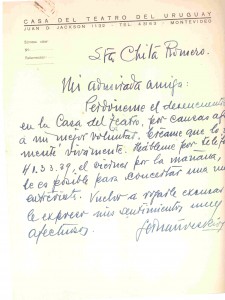 CASA DEL TEATRO DEL URUGUAY
JUAN D. JACKSON 1132 - TEL. - MONTEVIDEO
Sta Chita Romero.
Mi admirada amiga:
Perdóneme el desencuentro
en la Casa del Teatro, por causas aj
a mi mejor voluntad. Créame que lo
menté vivamente. Hábleme por telé
41.53.39, el viernes por la mañana,
le es posible para concertar una nu
entrevista. Vuelvo a rogarle excusas
le expreso mis sentimientos muy
afectuosos.